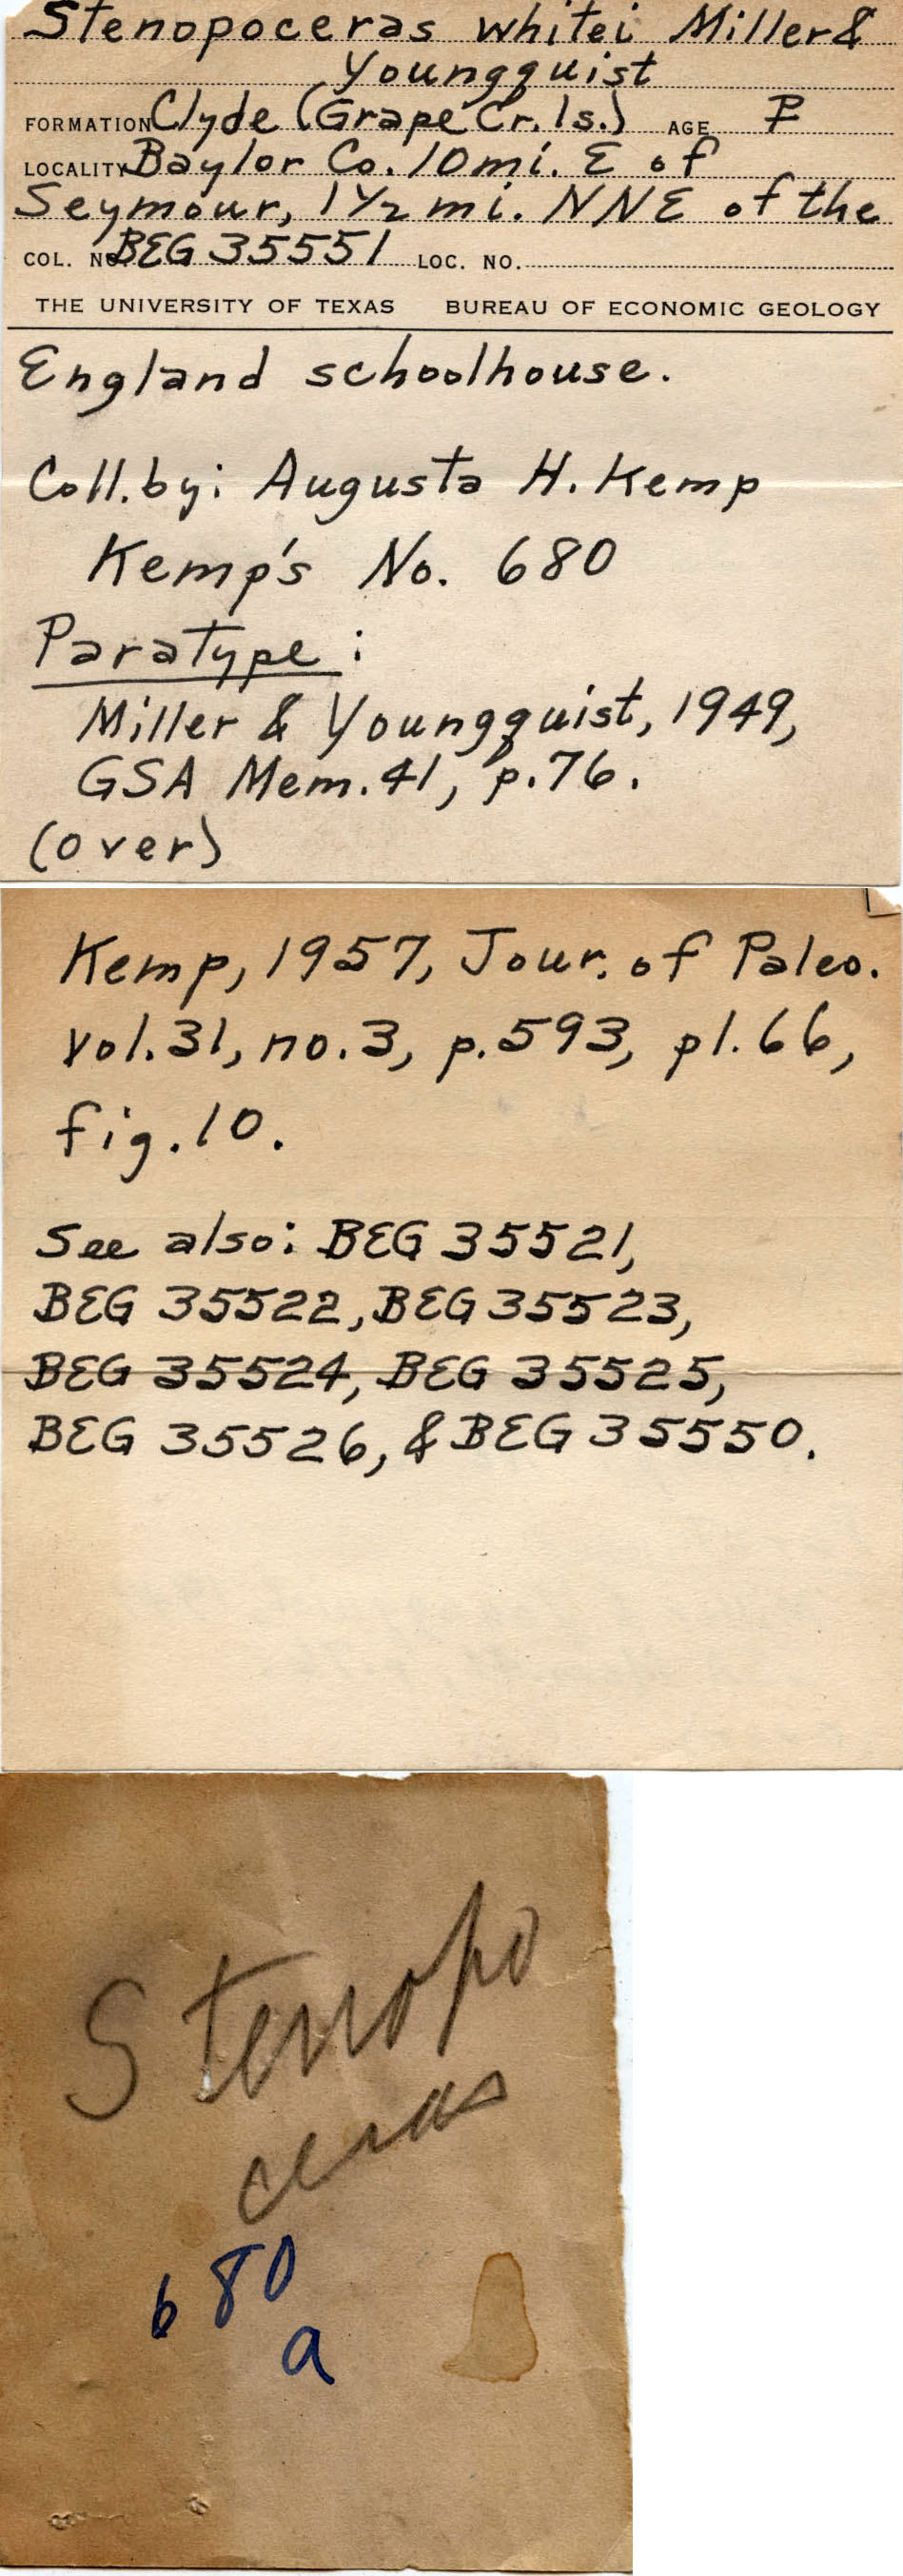 Stenopoceras whitei Miller &
Youngquist
FORMATION Clyde (Grape Cr. ls.) AGE P
LOCALITY Baylor Co. 10 mi. E of
Seymour, 1 1/2 mi. NNE of the
COL. NO. BEG 35551 LOC. NO.
THE UNIVERSITY OF TEXAS BUREAU OF ECONOMIC GEOLOGY
England schoolhouse.
Coll. by: Augusta H. Kemp
Kemp's No. 680
Paratype:
Miller & Youngquist, 1949,
GSA Mem. 41, p. 76.
(over)
Kemp, 1957, Jour. of Paleo.
vol. 31, no. 3, p. 593, pl. 66,
fig. 10.
See also: BEG 35521,
BEG 35522, BEG 35523,
BEG 35524, BEG 35525,
BEG 35526, & BEG 35550.
Stenopo
ceras
680
a